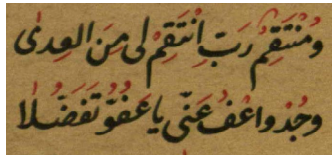 وَمُنْتَقِمٌ رَبِّ انْتَقِمْ لِى مِنَ الْعِدٰى
وَجُدْ وَاعْفُ عَنِّى يَا عَفُوُّ تَفَضُّلَا